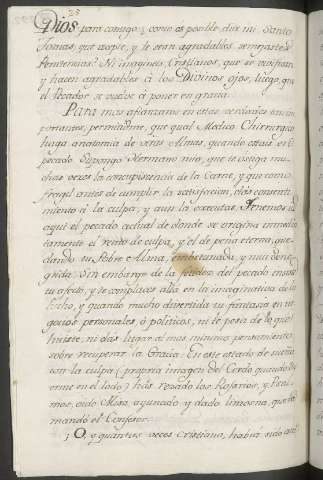 Dios para contigo; como es posible, dice mi Santo
Tomas, que acepte, y le sean agradables semejantes
Penitencias? No imagines, Cristianos, que se vivifican,
y hacen agradables á los Divinos ojos, luego que
el Pecador se vuelve á poner en gracia.
Para mas afianzaros en estas verdades tan im-
portantes, permitidme, que qual Medico Chirurgico
haga anatomia de vras Almas, quando estais en
pecado. Supongo Hermano mio, que te ostiga mu-
chas veces la concupisencia de la Carne, y que como
fragil antes de cumplir la satisfacion, das consenti-
miento á la culpa, y aun la executas. Tenemos
aqui el pecado actual de donde se origina inmedia-
tamente el reato de culpa, y el de pena eterna, que-
dando tu Pobre Alma, y muy dene-
grida. Sin embargo de la fetidez del pecado
tu afecto, y te complaces allá en la imaginativa de lo
hecho, y quando mucho divertida tu fantasia en ne-
gocios personales, ó politicos, ni te pesa de lo que
huiste, ni das lugar al mas minimo pensamiento
sobre recuperar la Gracia. En este estado de sueño
con la culpa (propria imagen del Cerdo quando du-
erme en el lodo) hás rezado los Rosarios, y
mos, oido Misa, ayunado y dado limosna, que te
mandó el Confesor.
¡O, y quantas veces Cristiano, habrá sido